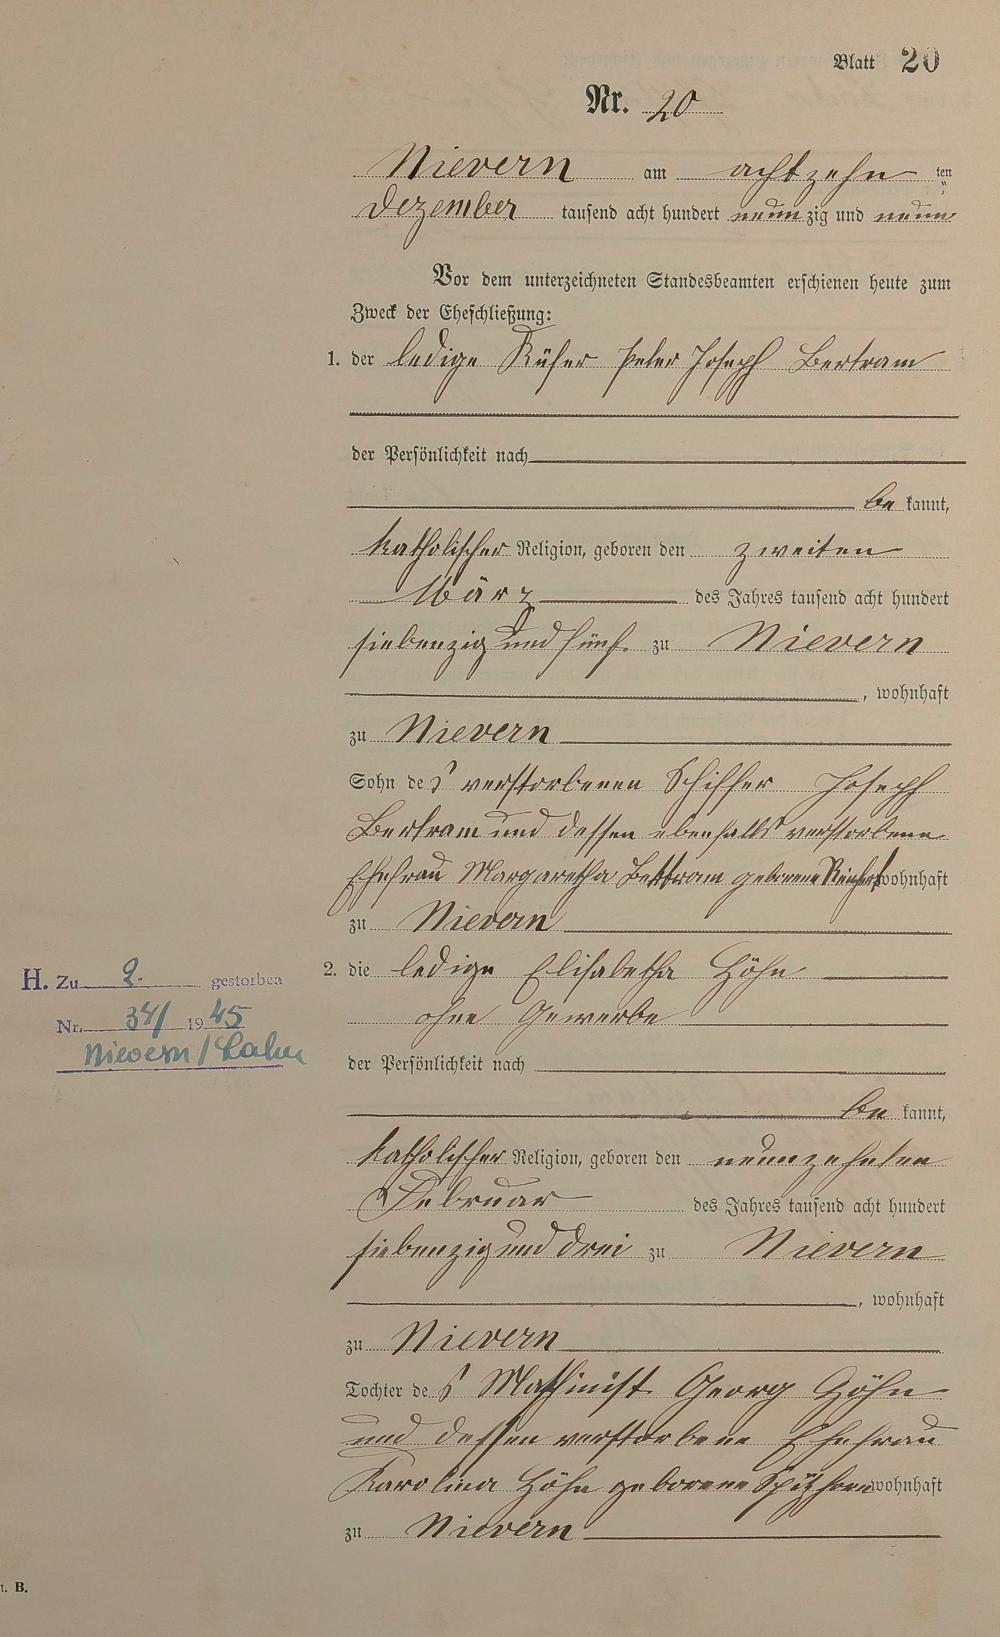 Blatt 20
Nr. 20
Nievern am achtzehn ten
Dezember tausend acht hundert neunzig und neun
Vor dem unterzeichneten Standesbeamten erschienen heute zum
Zweck der Eheschließung:
1. der ledige Küfer Peter Joseph Bertram
der Persönlichkeit nach
be kannt,
katholischer Religion, geboren den zweiten
März des Jahres tausend acht hundert
siebenzig und fünf zu Nievern
, wohnhaft
zu Nievern
Sohn des verstorbenen Schiffer Joseph
Bertram und dessen ebenfalls verstorbene
Ehefrau Margaretha Bertram geborene wohnhaft
zu Nievern
2. die ledige Elisabetha Höhn
ohne Gewerbe
H. Zu 2. gestorben
Nr. 34/ 1945
Nievern / Lahn
der Persönlichkeit nach
be kannt,
katholischer Religion, geboren den neunzehnten
Februar des Jahres tausend acht hundert
siebenzig und drei zu Nievern
, wohnhaft
zu Nievern
Tochter des Maschinist Georg Höhn
und dessen verstorbene Ehefrau
Karolina Höhn geborene wohnhaft
zu Nievern
t. B.